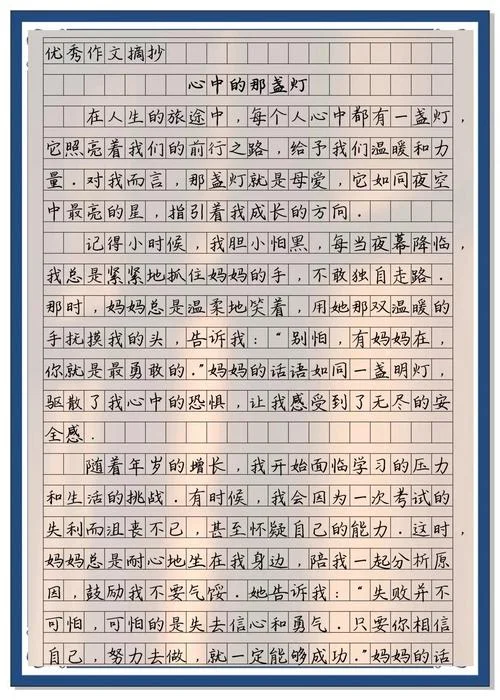 优秀作文摘抄
心中的那盏灯
在人生的旅途中，每个人心中都有一盏灯，
它照亮着我们的前行之路，给予我们温暖和力
量．对我而言，那盏灯就是母爱，它如同夜空
中最亮的星，指引着我成长的方向．
记得小时候，我胆小怕黑，每当夜幕降临，
我总是紧紧地抓住妈妈的手，不敢独自走路．
那时，妈妈总是温柔地笑着，用她那双温暖的
手抚摸我的头，告诉我：“别怕，有妈妈在，
你就是最勇敢的．”妈妈的话语如同一盏明灯，
驱散了我心中的恐惧，让我感受到了无尽的安
全感．
随着年岁的增长，我开始面临学习的压力
和生活的挑战．有时候，我会因为一次考试的
失利而沮丧不已，甚至怀疑自己的能力．这时，
妈妈总是耐心地坐在我身边，陪我一起分析原
因，鼓励我不要气馁．她告诉我：“失败并不
可怕，可怕的是失去信心和勇气．只要你相信
自己，努力去做，就一定能够成功．”妈妈的话